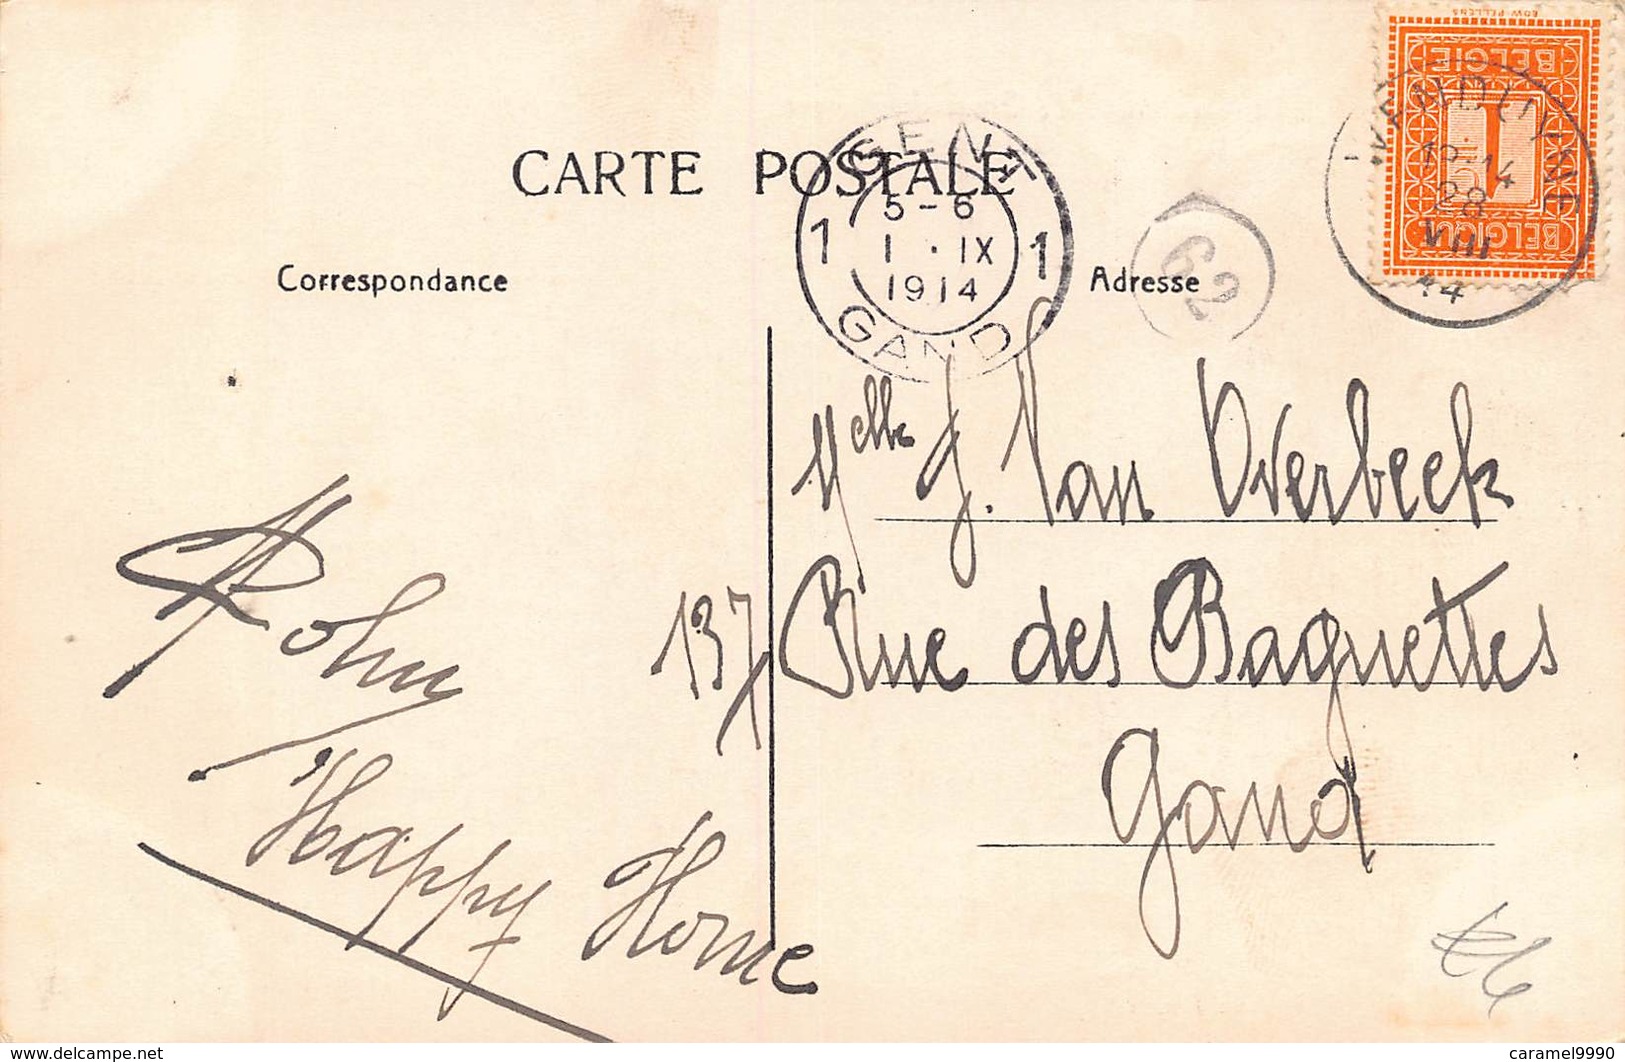 EDW. PELLENS
BELGIE
1
BELGIQUE
WENDUYNE
28
VIII
14
CARTE POSTALE
GENT
5-6
1 1 . IX 1
1914
GAND
62
Correspondance
Adresse
Melle J. Van Overbeek
137 Rue des Baguettes
Gand
Happy Home
delcampe.net
caramel9990